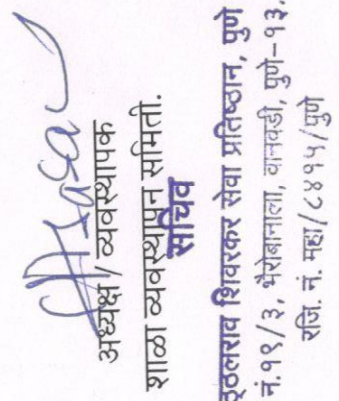 अध्यक्ष / व्यवस्थापक
शाळा व्यवस्थापन समिती.
सचिव
ठ्ठलराव शिवरकर सेवा प्रतिष्ठान, पुणे
नं.१९/३, भैरोबानाला, वानवडी, पुणे-१३.
रजि. नं. महा/८४९५/पुणे